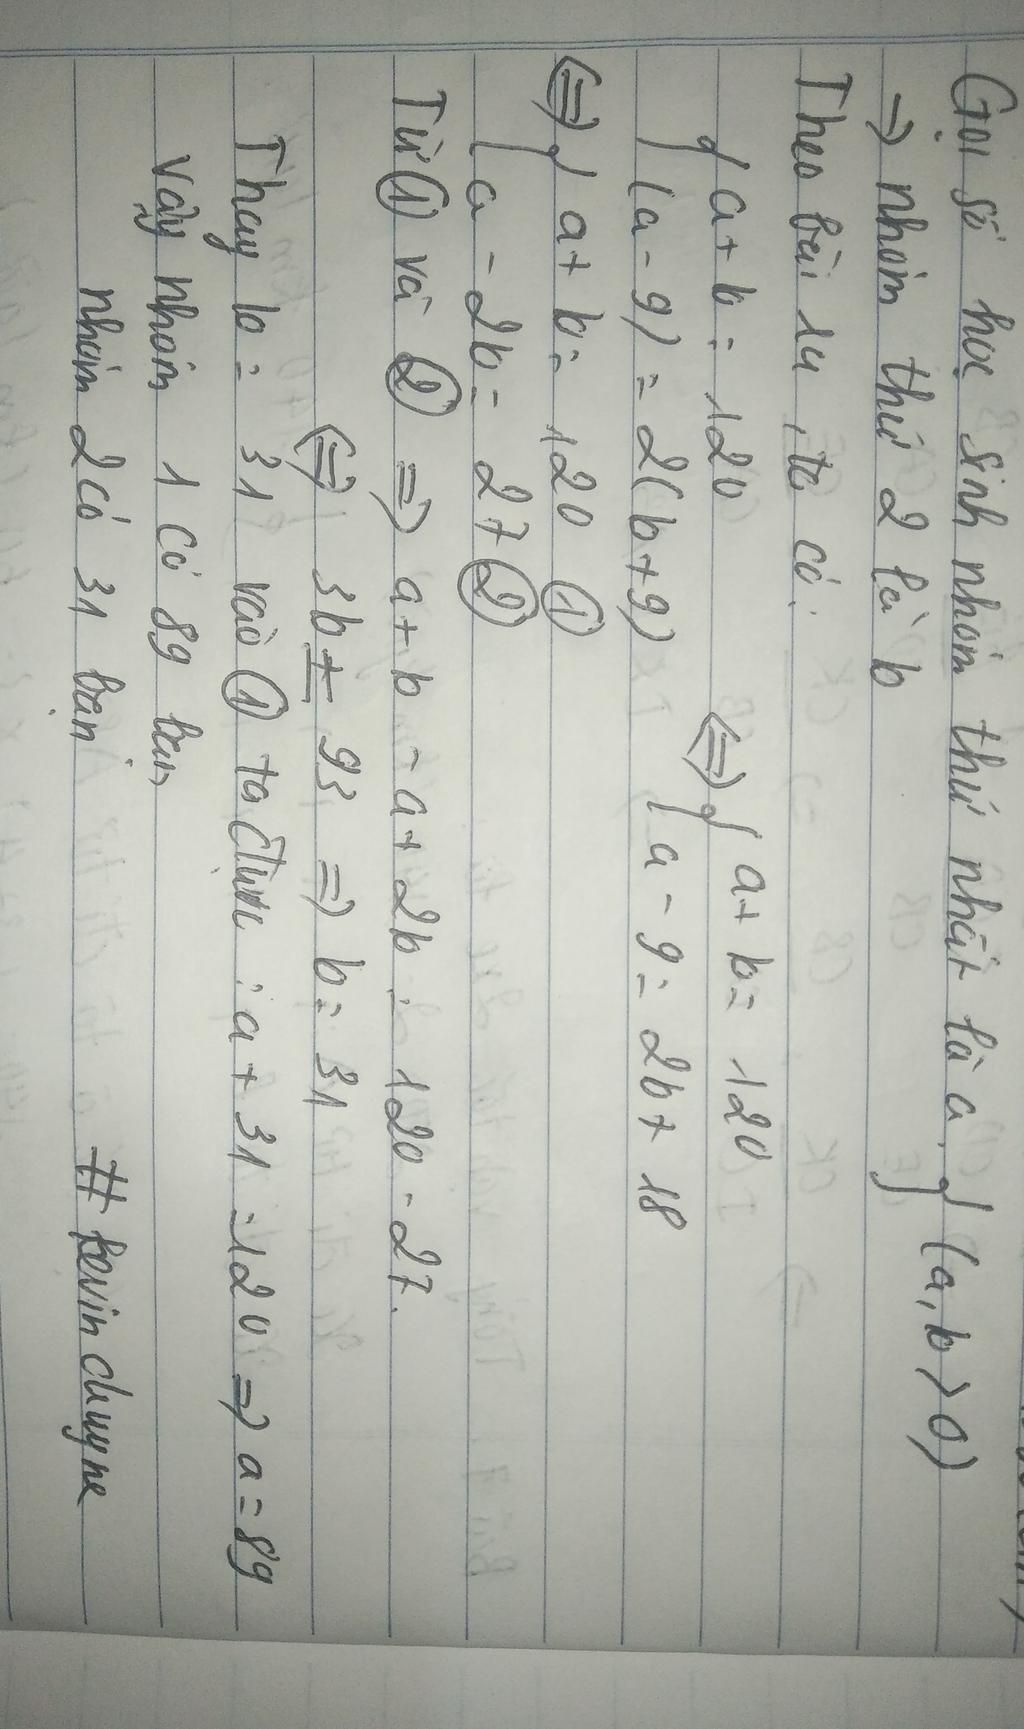 Gọi số học sinh nhóm thứ nhất là a } (a, b > 0)
=> nhóm thứ 2 là b
Theo bài ra, ta có:
{ a + b = 120 <=> { a + b = 120
(a - 9) = 2(b + 9) a - 9 = 2b + 18
<=> { a + b = 120 ①
a - 2b = 27 ②
Từ ① và ② => a + b - a + 2b = 120 - 27.
<=> 3b = 93 => b = 31
Thay b = 31 vào ① ta được: a + 31 = 120 => a = 89
Vậy nhóm 1 có 89 bạn
nhóm 2 có 31 bạn # kevin chuyne